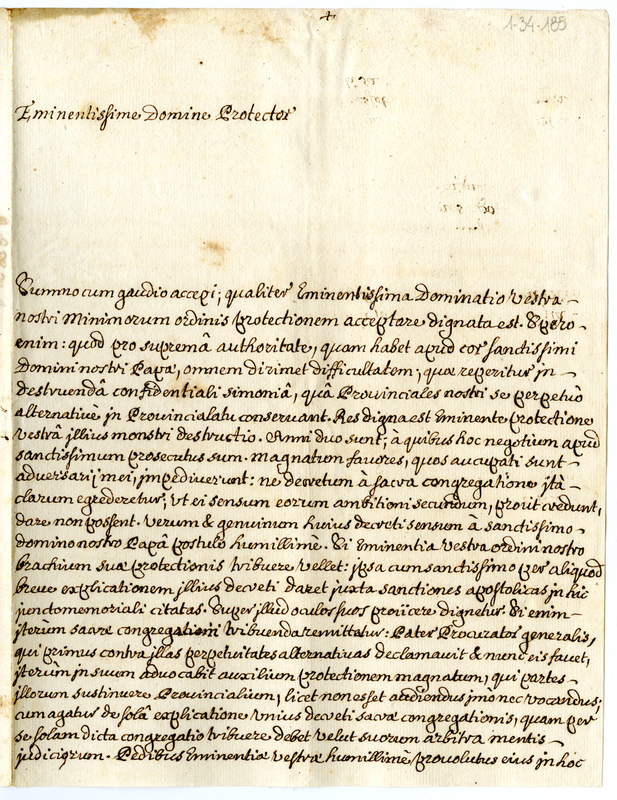 1-34-185
Eminentissime Domine Protector
Summo cum gaudio accepi; qualiter Eminentissima Dominatio Vestra
nostri Minimorum ordinis protectionem acceptare dignata est. Spero
enim: quod pro supremâ authoritate, quam habet apud cor sanctissimi
Domini nostri Papæ, omnem dirimet difficultatem; quæ reperitur jn
destruendâ confidentiali simoniâ, quâ Provinciales nostri se perpetuò
alternative jn Provincialatu conservant. Res digna est Eminente protectione
Vestrâ jllius monstri destructio. Anni duo sunt; à quibus hoc negotium apud
sanctissimum prosecutus sum. Magnatum favores, quos aucupati sunt
adversarij mei, jmpediverunt: ne decretum à sacra congregatione jtà
clarum egrederetur; vt ei sensum eorum ambitioni secundum, proùt credunt,
dare non possent. Verum & genuinum huius decreti sensum à sanctissimo
domino nostro Papâ postulo humillimè. Si Eminentia Vestra ordini nostro
brachium suæ protectionis tribuere vellet: jpsa cum sanctissimo per aliquod
breve explicationem jllius decreti daret juxta sanctiones apostolicas jn hìc
juncto memoriali citatas. Super jllud oculos suos projicere dignetur. Si enim
jterùm sacræ congregationi tribuenda remittatur: Pater Procurator generalis,
qui primus contra jllas perpetuitates alternativas declamavit & nunc eis favet,
jterùm jn suum advocabit auxilium protectionem magnatum, qui partes
jllorum sustinuere Provincialium, licet non esset audiendus jmo nec vocandus;
cum agatur de solâ explicatione vnius decreti sacræ congregationis, quam per
se solam dicta congregatio tribuere debet velut suorum arbitra mentis
judiciorum. Pedibus Eminentiæ Vestræ humillimè provolutus eius jn hoc